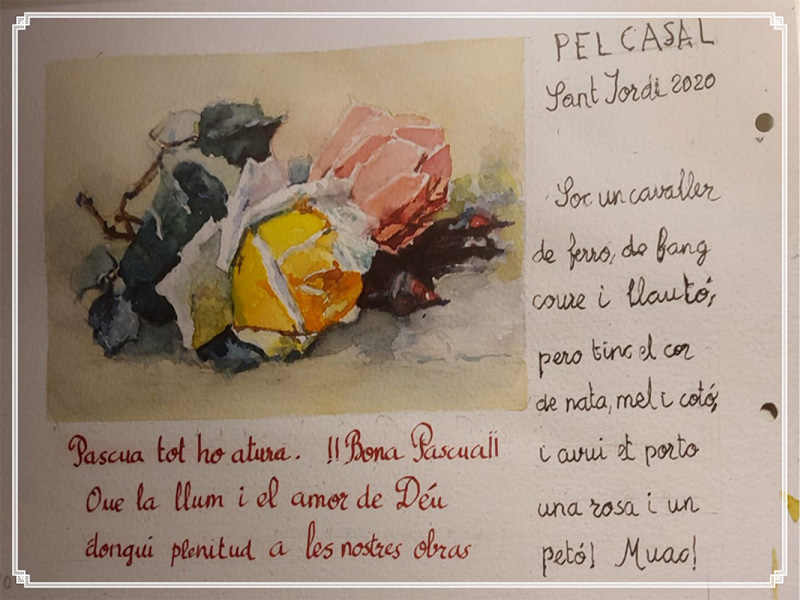 PEL CASAL
Sant Jordi 2020
Soc un cavaller
de ferro, de fang
coure i llautó,
pero tinc el cor
de nata, mel i cotó,
i avui et porto
una rosa i un
petó! Muac!
Pascua tot ho atura. !!Bona Pascua!!
Que la llum i el amor de Déu
dongui plenitud a les nostres obras